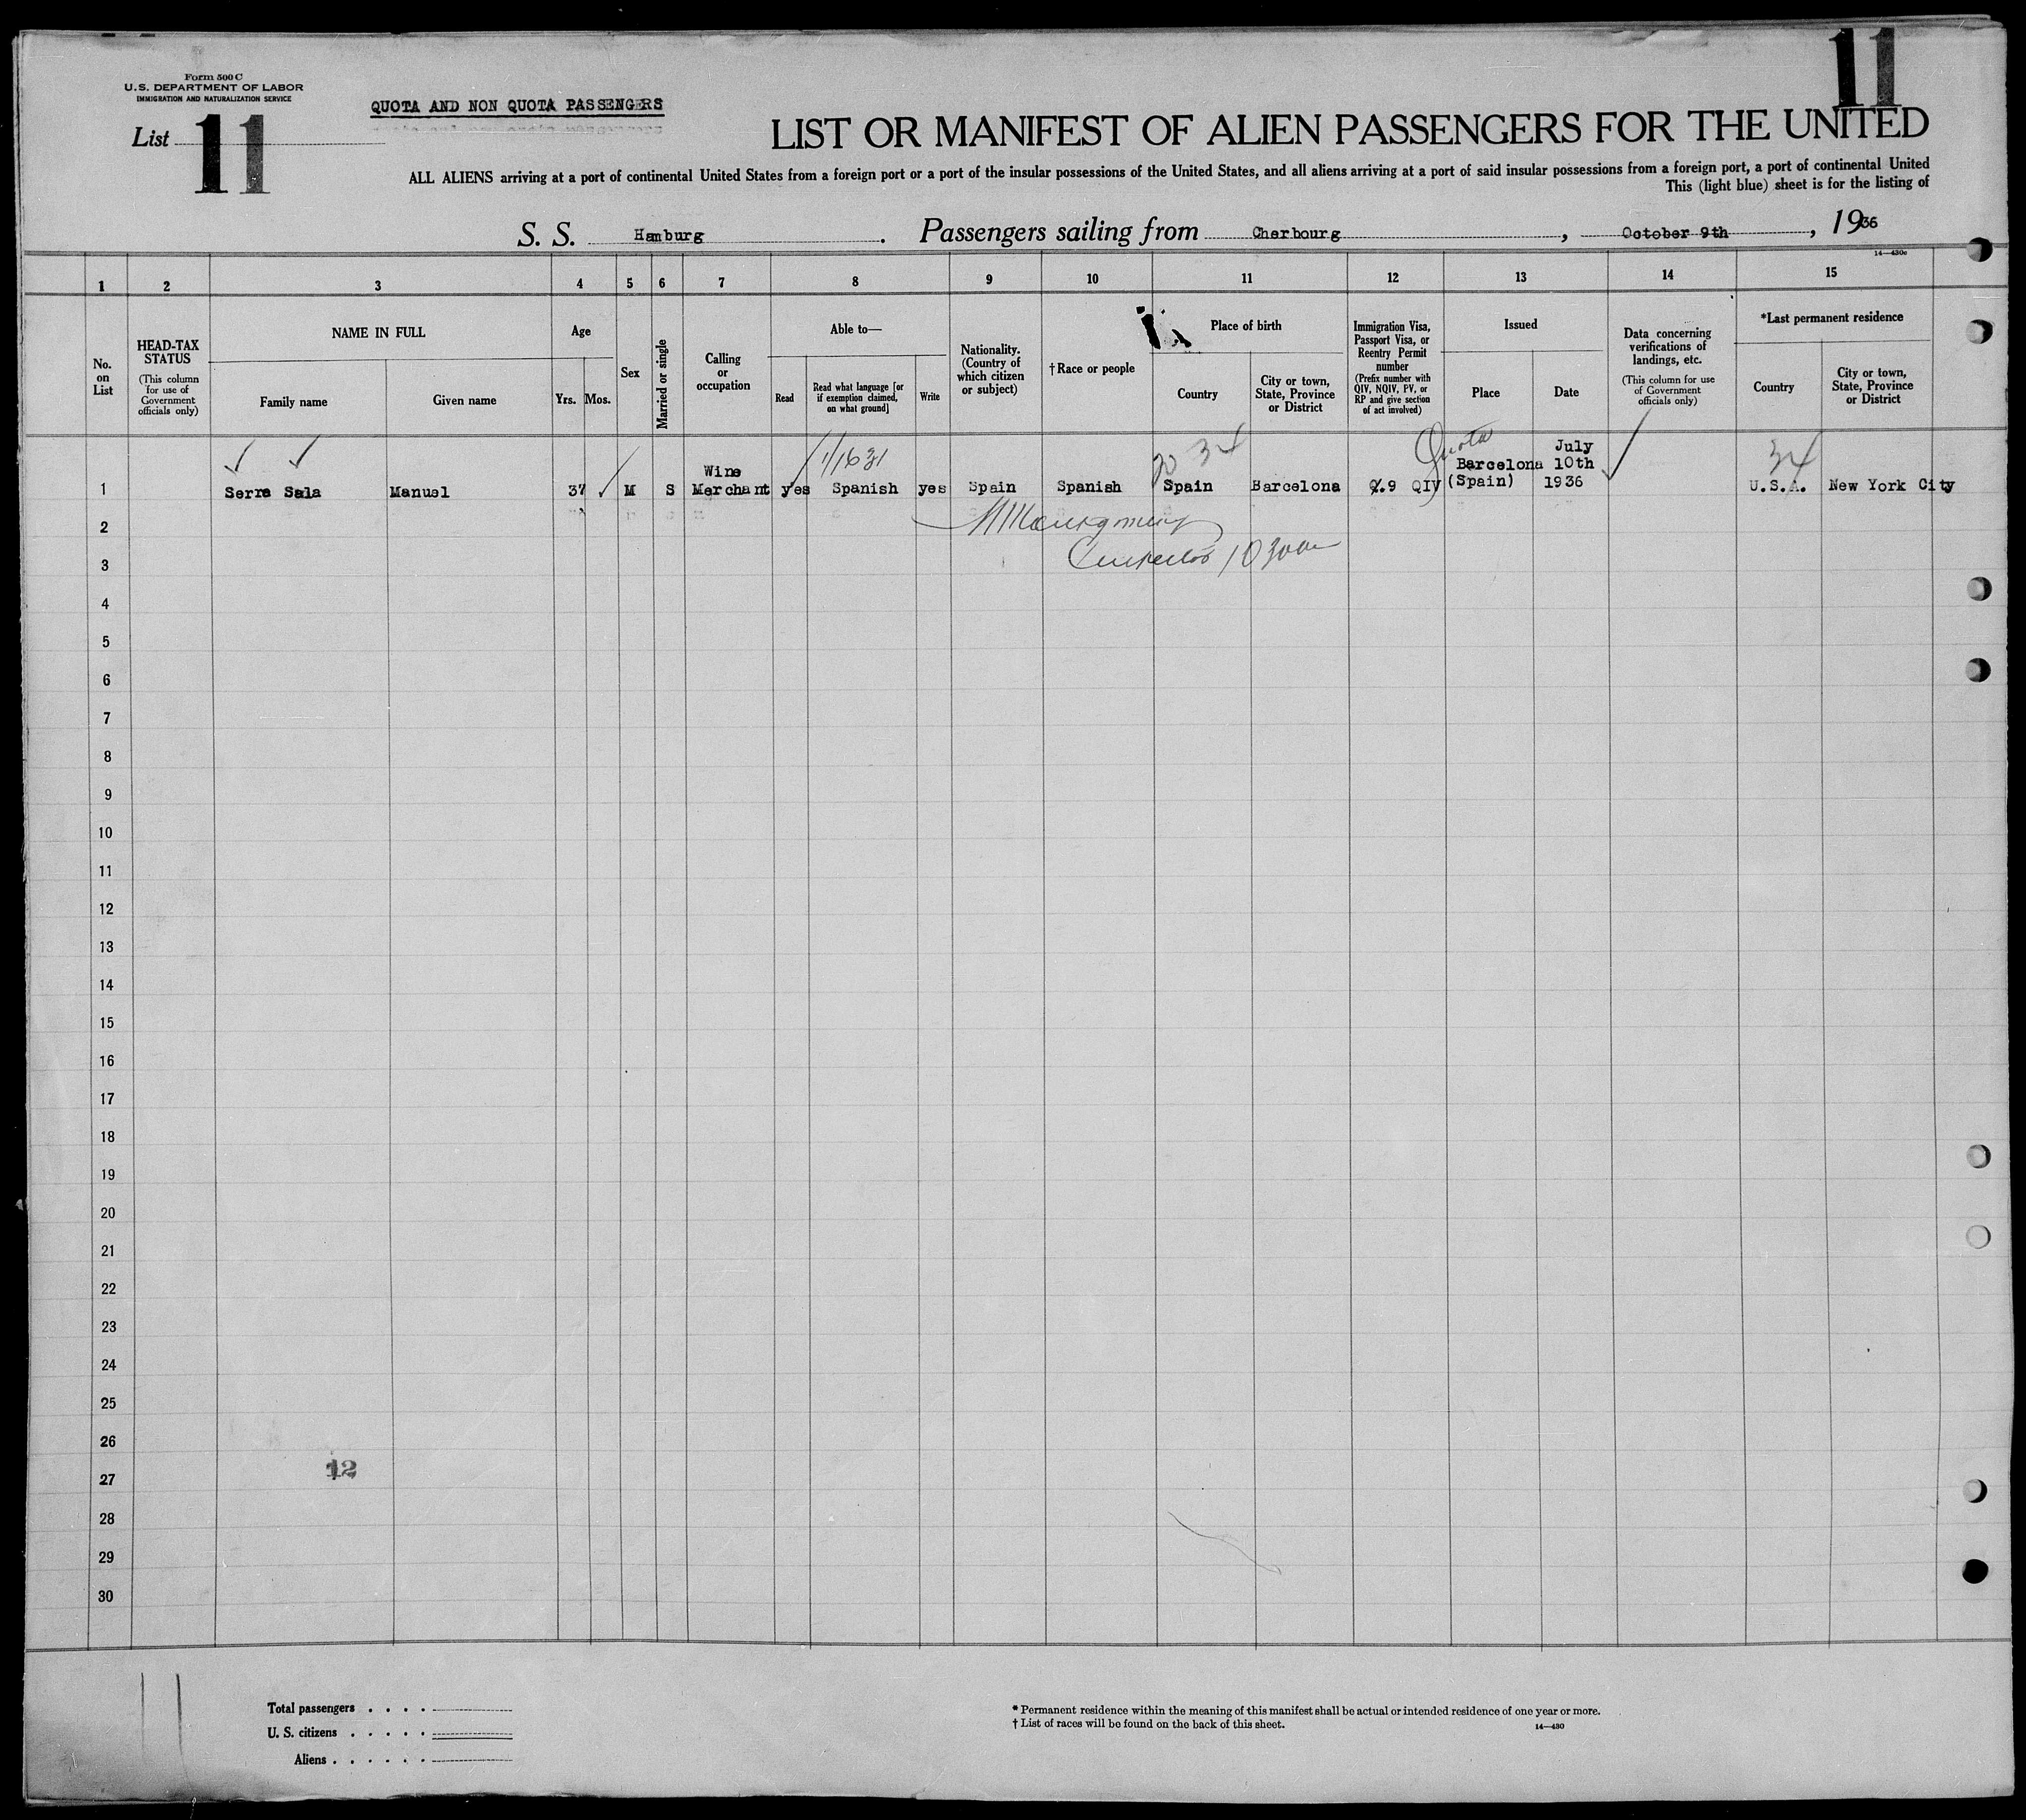 Form 500 C
U.S. DEPARTMENT OF LABOR
IMMIGRATION AND NATURALIZATION SERVICE
List 11
QUOTA AND NON QUOTA PASSENGERS
11
LIST OR MANIFEST OF ALIEN PASSENGERS FOR THE UNITED
ALL ALIENS arriving at a port of continental United States from a foreign port or a port of the insular possessions of the United States, and all aliens arriving at a port of said insular possessions from a foreign port, a port of continental United
This (light blue) sheet is for the listing of
S. S. Hamburg . Passengers sailing from Cherbourg , October 9th , 1936
14—430c
1 2 3 4 5 6 7 8 9 10 11 12 13 14 15
No. on List
HEAD-TAX STATUS
(This column for use of Government officials only)
NAME IN FULL
Family name
Given name
Age
Yrs. Mos.
Sex
Married or single
Calling or occupation
Able to—
Read
Read what language [or if exemption claimed, on what ground]
Write
Nationality. (Country of which citizen or subject)
† Race or people
Place of birth
Country
City or town, State, Province or District
Immigration Visa, Passport Visa, or Reentry Permit number
(Prefix number with QIV, NQIV, PV, or RP and give section of act involved)
Issued
Place
Date
Data concerning verifications of landings, etc.
(This column for use of Government officials only)
*Last permanent residence
Country
City or town, State, Province or District
34
Quota
34
1 Serra Sala Manuel 37 M S Wine Merchant yes Spanish yes Spain Spanish Spain Barcelona 9 QIV Barcelona (Spain) July 10th 1936 U.S.A. New York City
2
3
4
5
6
7
8
9
10
11
12
13
14
15
16
17
18
19
20
21
22
23
24
25
26
12
27
28
29
30
11
Total passengers . . . .
U. S. citizens . . . . .
Aliens . . . . . .
* Permanent residence within the meaning of this manifest shall be actual or intended residence of one year or more.
† List of races will be found on the back of this sheet.
14—430